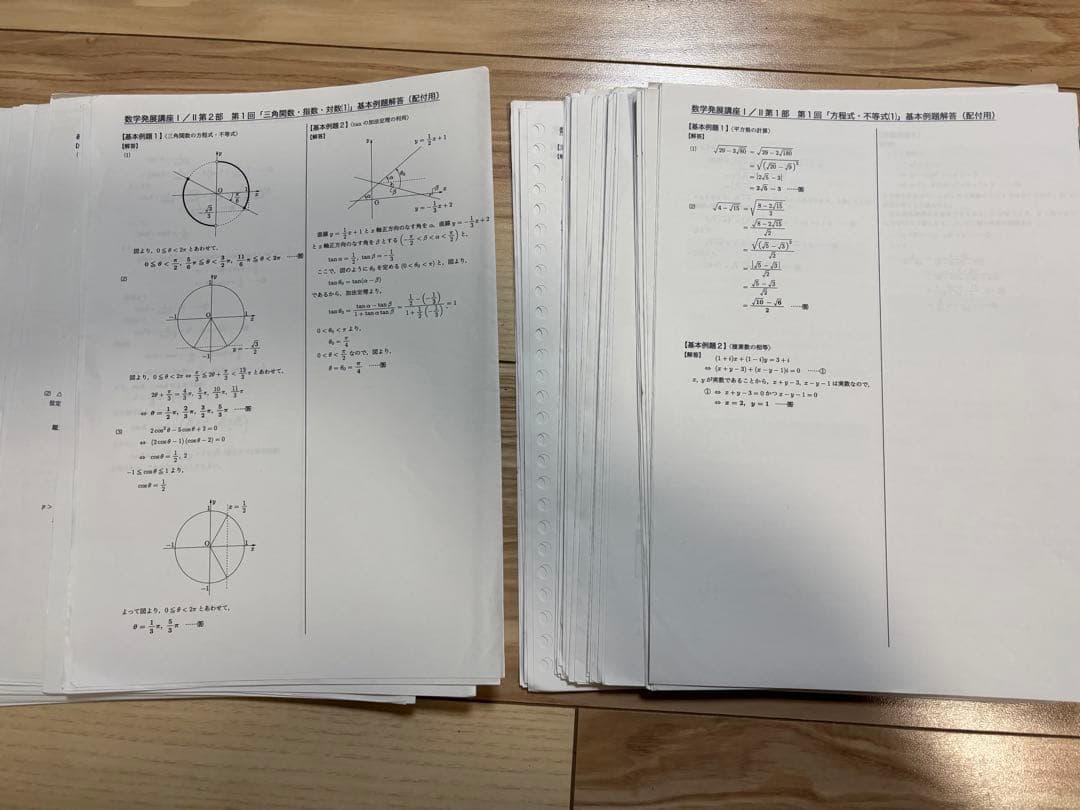 数学発展講座Ⅰ/Ⅱ第2部 第1回「三角関数・指数・対数(1)」基本例題解答(配付用)
【基本例題1】(三角関数の方程式・不等式)
【解答】
(1)
y
O
1
x
図より,0≦θ<2π とあわせて,
0≦θ<π/2, 5/6π≦θ<3/2π, 11/6π≦θ<2π ……答
(2)
y
1
-1
O
1
x
-1
図より,0≦θ<2π ⇔ π/3≦2θ+π/3<13/3π とあわせて,
2θ+π/3=4/3π, 5/3π, 10/3π, 11/3π
⇔ θ=1/2π, 2/3π, 3/2π, 5/3π ……答
(3)
2cos²θ-5cosθ+2=0
⇔ (2cosθ-1)(cosθ-2)=0
⇔ cosθ=1/2, 2
-1≦cosθ≦1 より,
cosθ=1/2
y
x=1/2
1
-1
O
1
x
-1
よって図より,0≦θ<2π とあわせて,
θ=1/3π, 5/3π ……答
【基本例題2】(tan の加法定理の利用)
【解答】
y=1/2x+1
y=-1/3x+2
直線 y=1/2x+1 と x 軸正方向のなす角を α,直線 y=-1/3x+2
と x 軸正方向のなす角を β とする(-π/2<β<α<π/2)と,
tanα=1/2, tanβ=-1/3
ここで,図のように θ₀ を定める (0<θ₀<π) と,図より,
tanθ₀=tan(α-β)
であるから,加法定理より,
tanθ₀=(tanα-tanβ)/(1+tanαtanβ)=(1/2-(-1/3))/(1+1/2(-1/3))=1
0<θ₀<π より,
θ₀=π/4
0<θ<π/2 なので,図より,
θ=θ₀=π/4 ……答
(2) △
p>
数学発展講座Ⅰ/Ⅱ第1部 第1回「方程式・不等式(1)」基本例題解答(配付用)
【基本例題1】(平方根の計算)
【解答】
(1) √(29-3√80)=√(29-2√180)
=√((√20-√9)²)
=|2√5-3|
=2√5-3 ……答
(2) √(4-√15)=√((8-2√15)/2)
=√(8-2√15)/√2
=√((√5-√3)²)/√2
=|√5-√3|/√2
=(√5-√3)/√2
=(√10-√6)/2 ……答
【基本例題2】(複素数の相等)
【解答】
(1+i)x+(1-i)y=3+i
⇔ (x+y-3)+(x-y-1)i=0 ……①
x, y が実数であることから,x+y-3, x-y-1 は実数なので,
① ⇔ x+y-3=0 かつ x-y-1=0
⇔ x=2, y=1 ……答